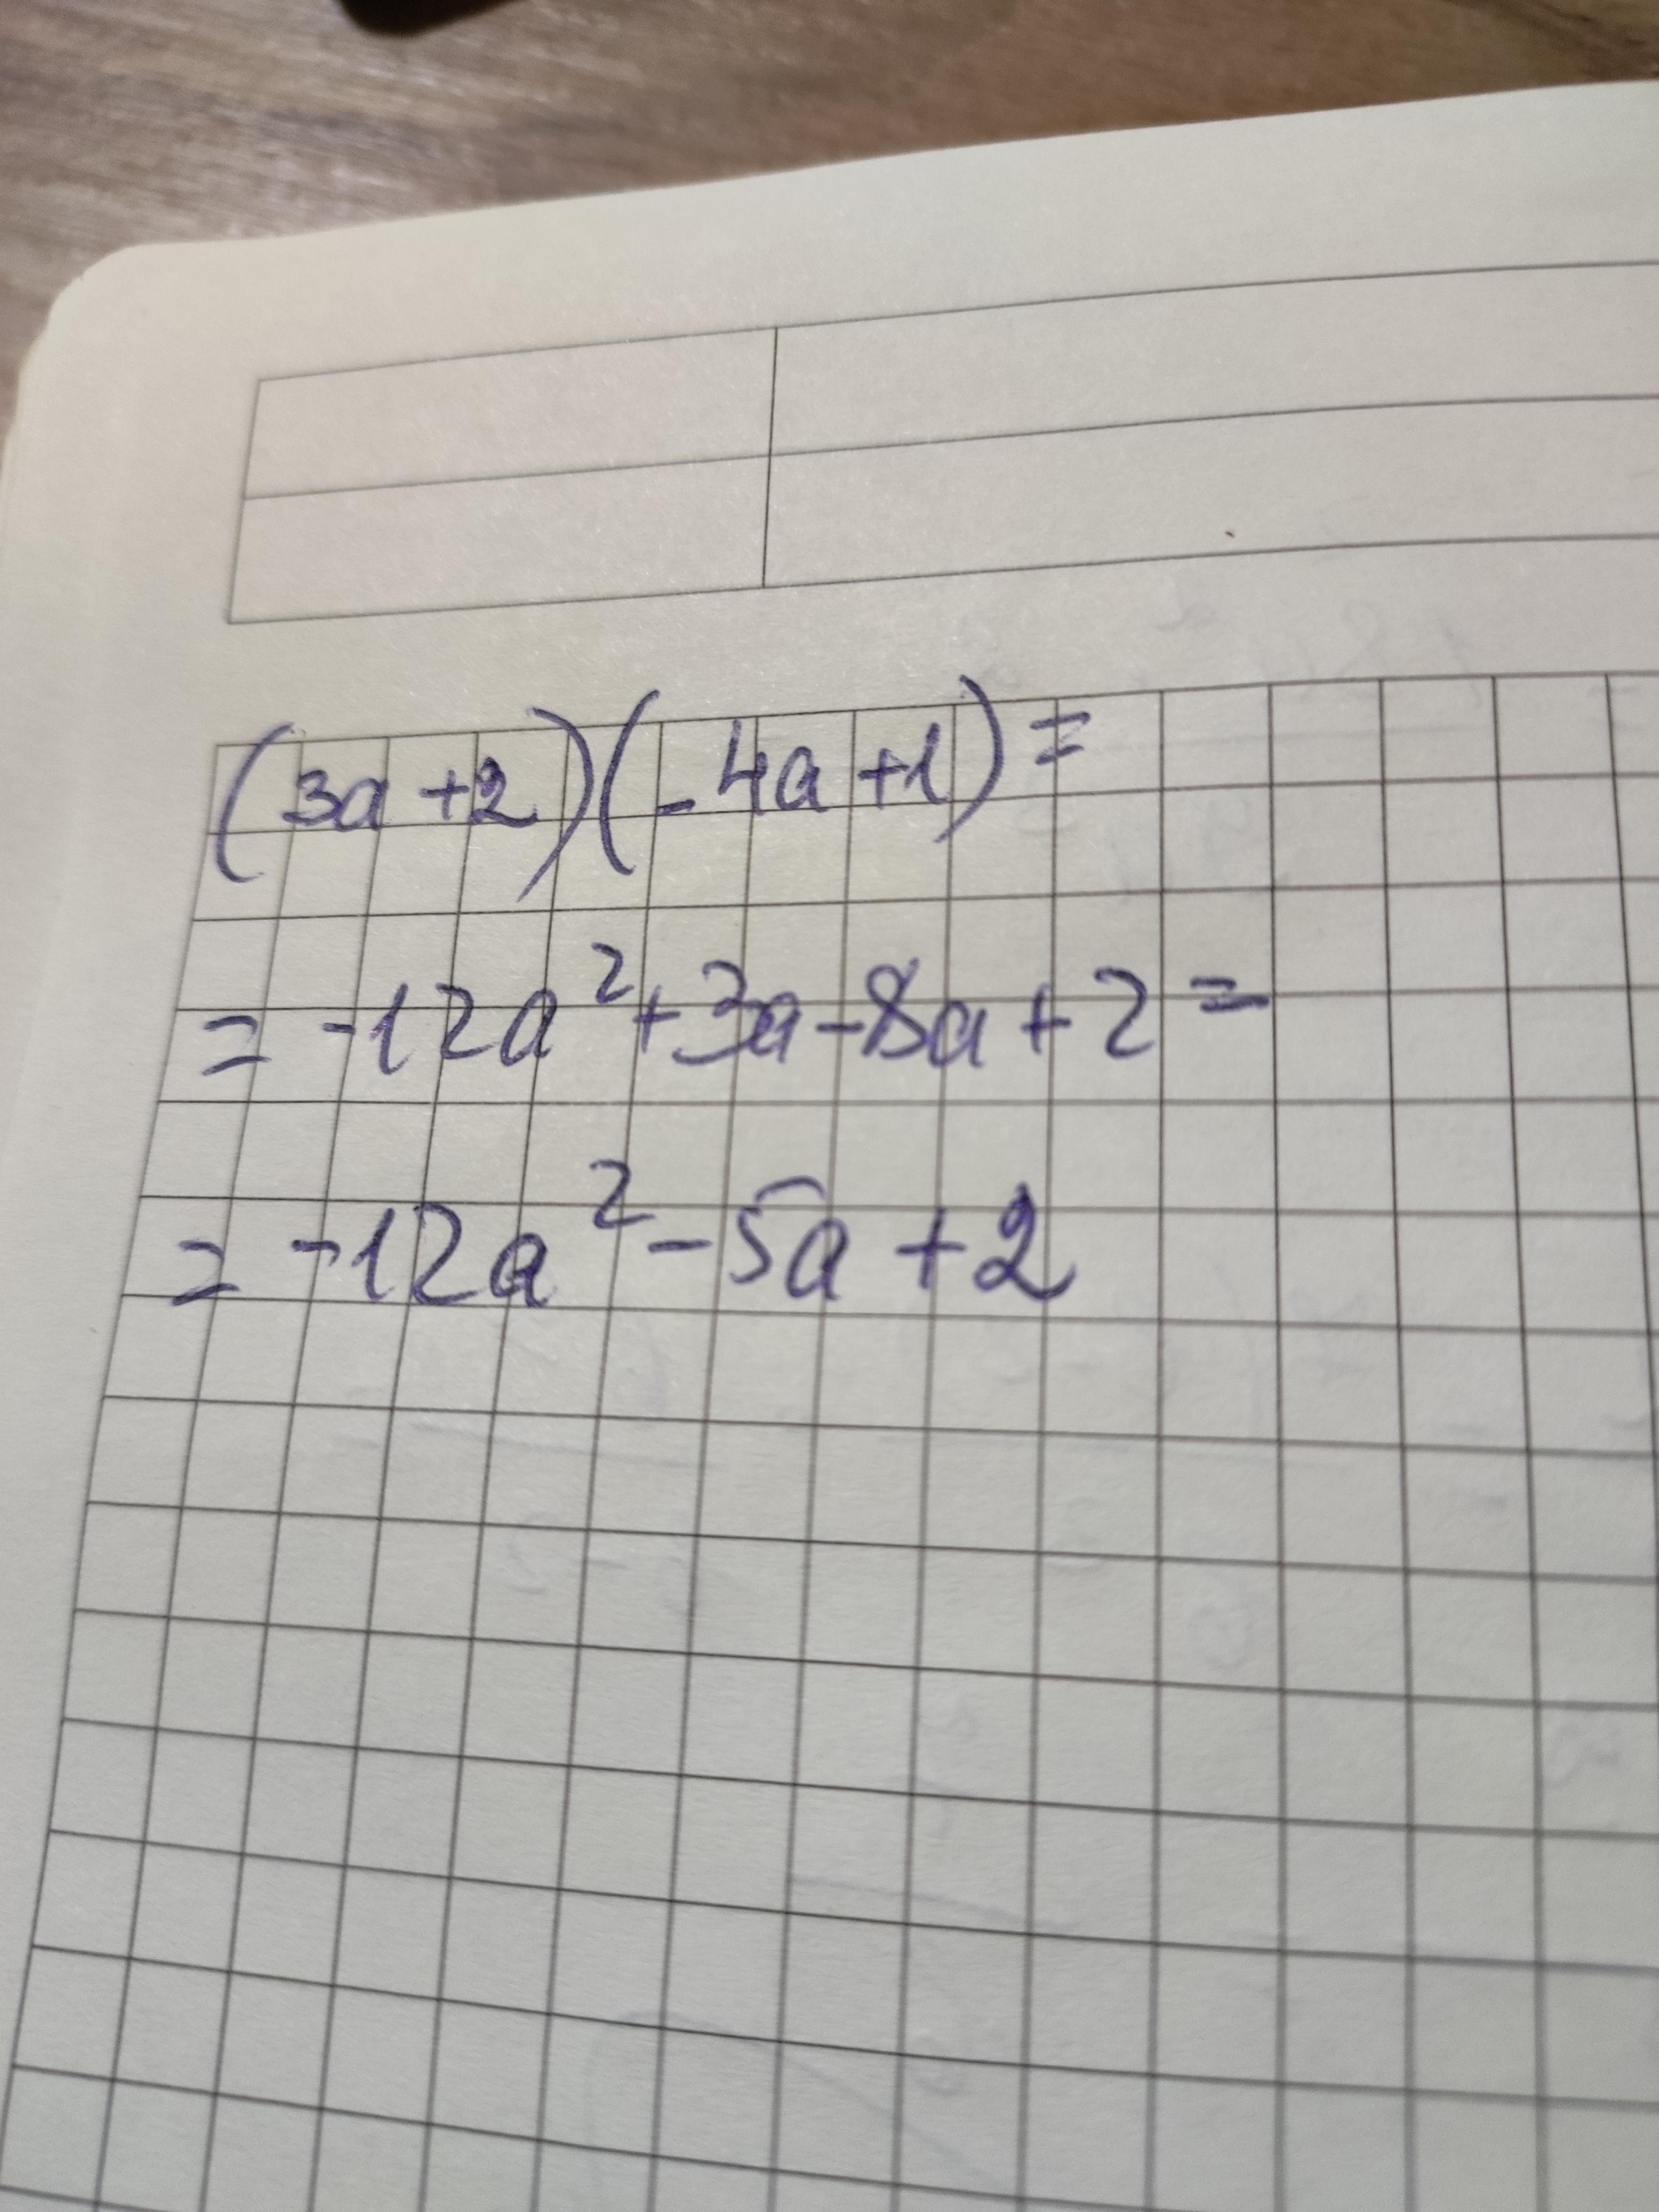 (3a+2)(-4a+1)=
= -12a²+3a-8a+2=
= -12a²-5a+2